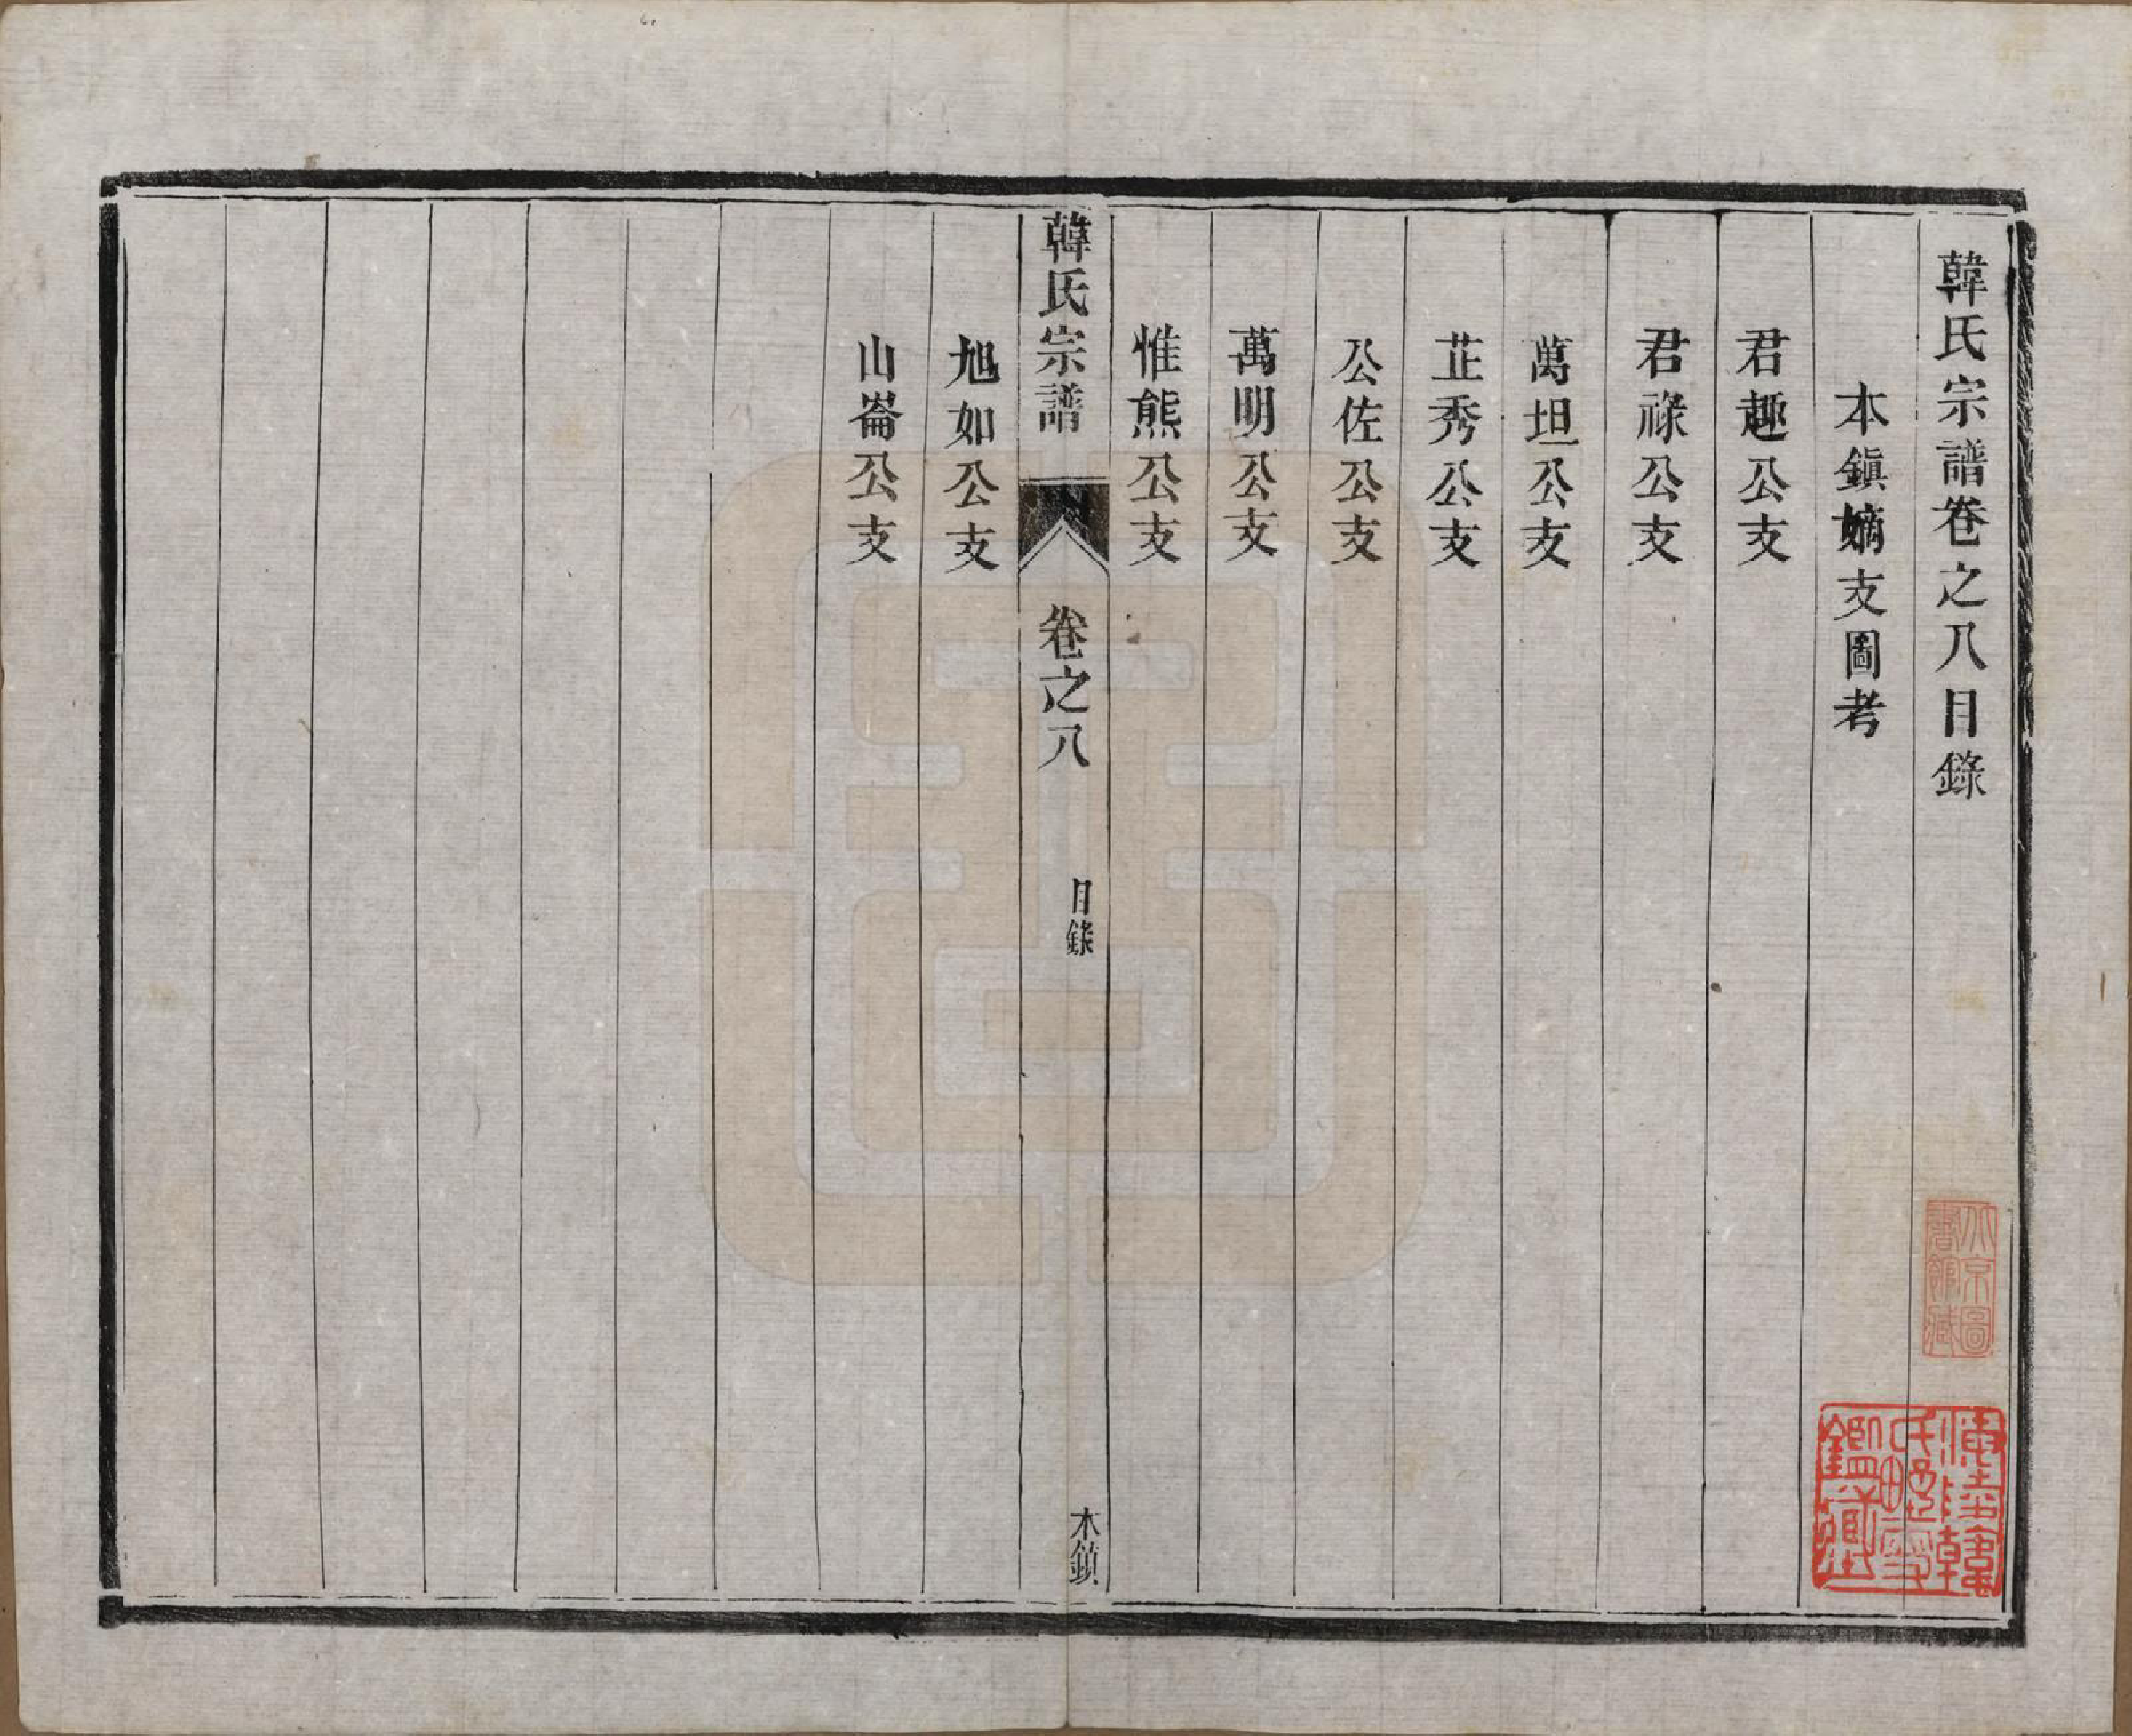 韓氏宗譜卷之八目錄
本鎭嫡支圖考
君趣公支
君祿公支
萬坦公支
芷秀公支
公佐公支
萬明公支
惟熊公支
韓氏宗譜
卷之八
目錄
木鎭
旭如公支
山崙公支
北京圖書館藏